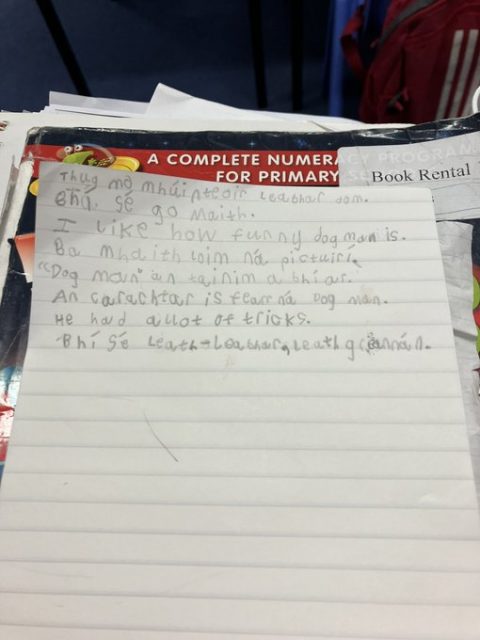 A COMPLETE NUMERACY PROGRAM
FOR PRIMARY
Book Rental
Thug mo mhúinteoir leabhar dom.
Bhí sé go maith.
I like how funny dog man is.
Ba mhaith loim ná pictuirí.
"Dog man" an tainim a bhí ar.
An carachtar is fearr ná Dog man.
He had a lot of tricks.
Bhí sé leath-leabhar, leath grennán.